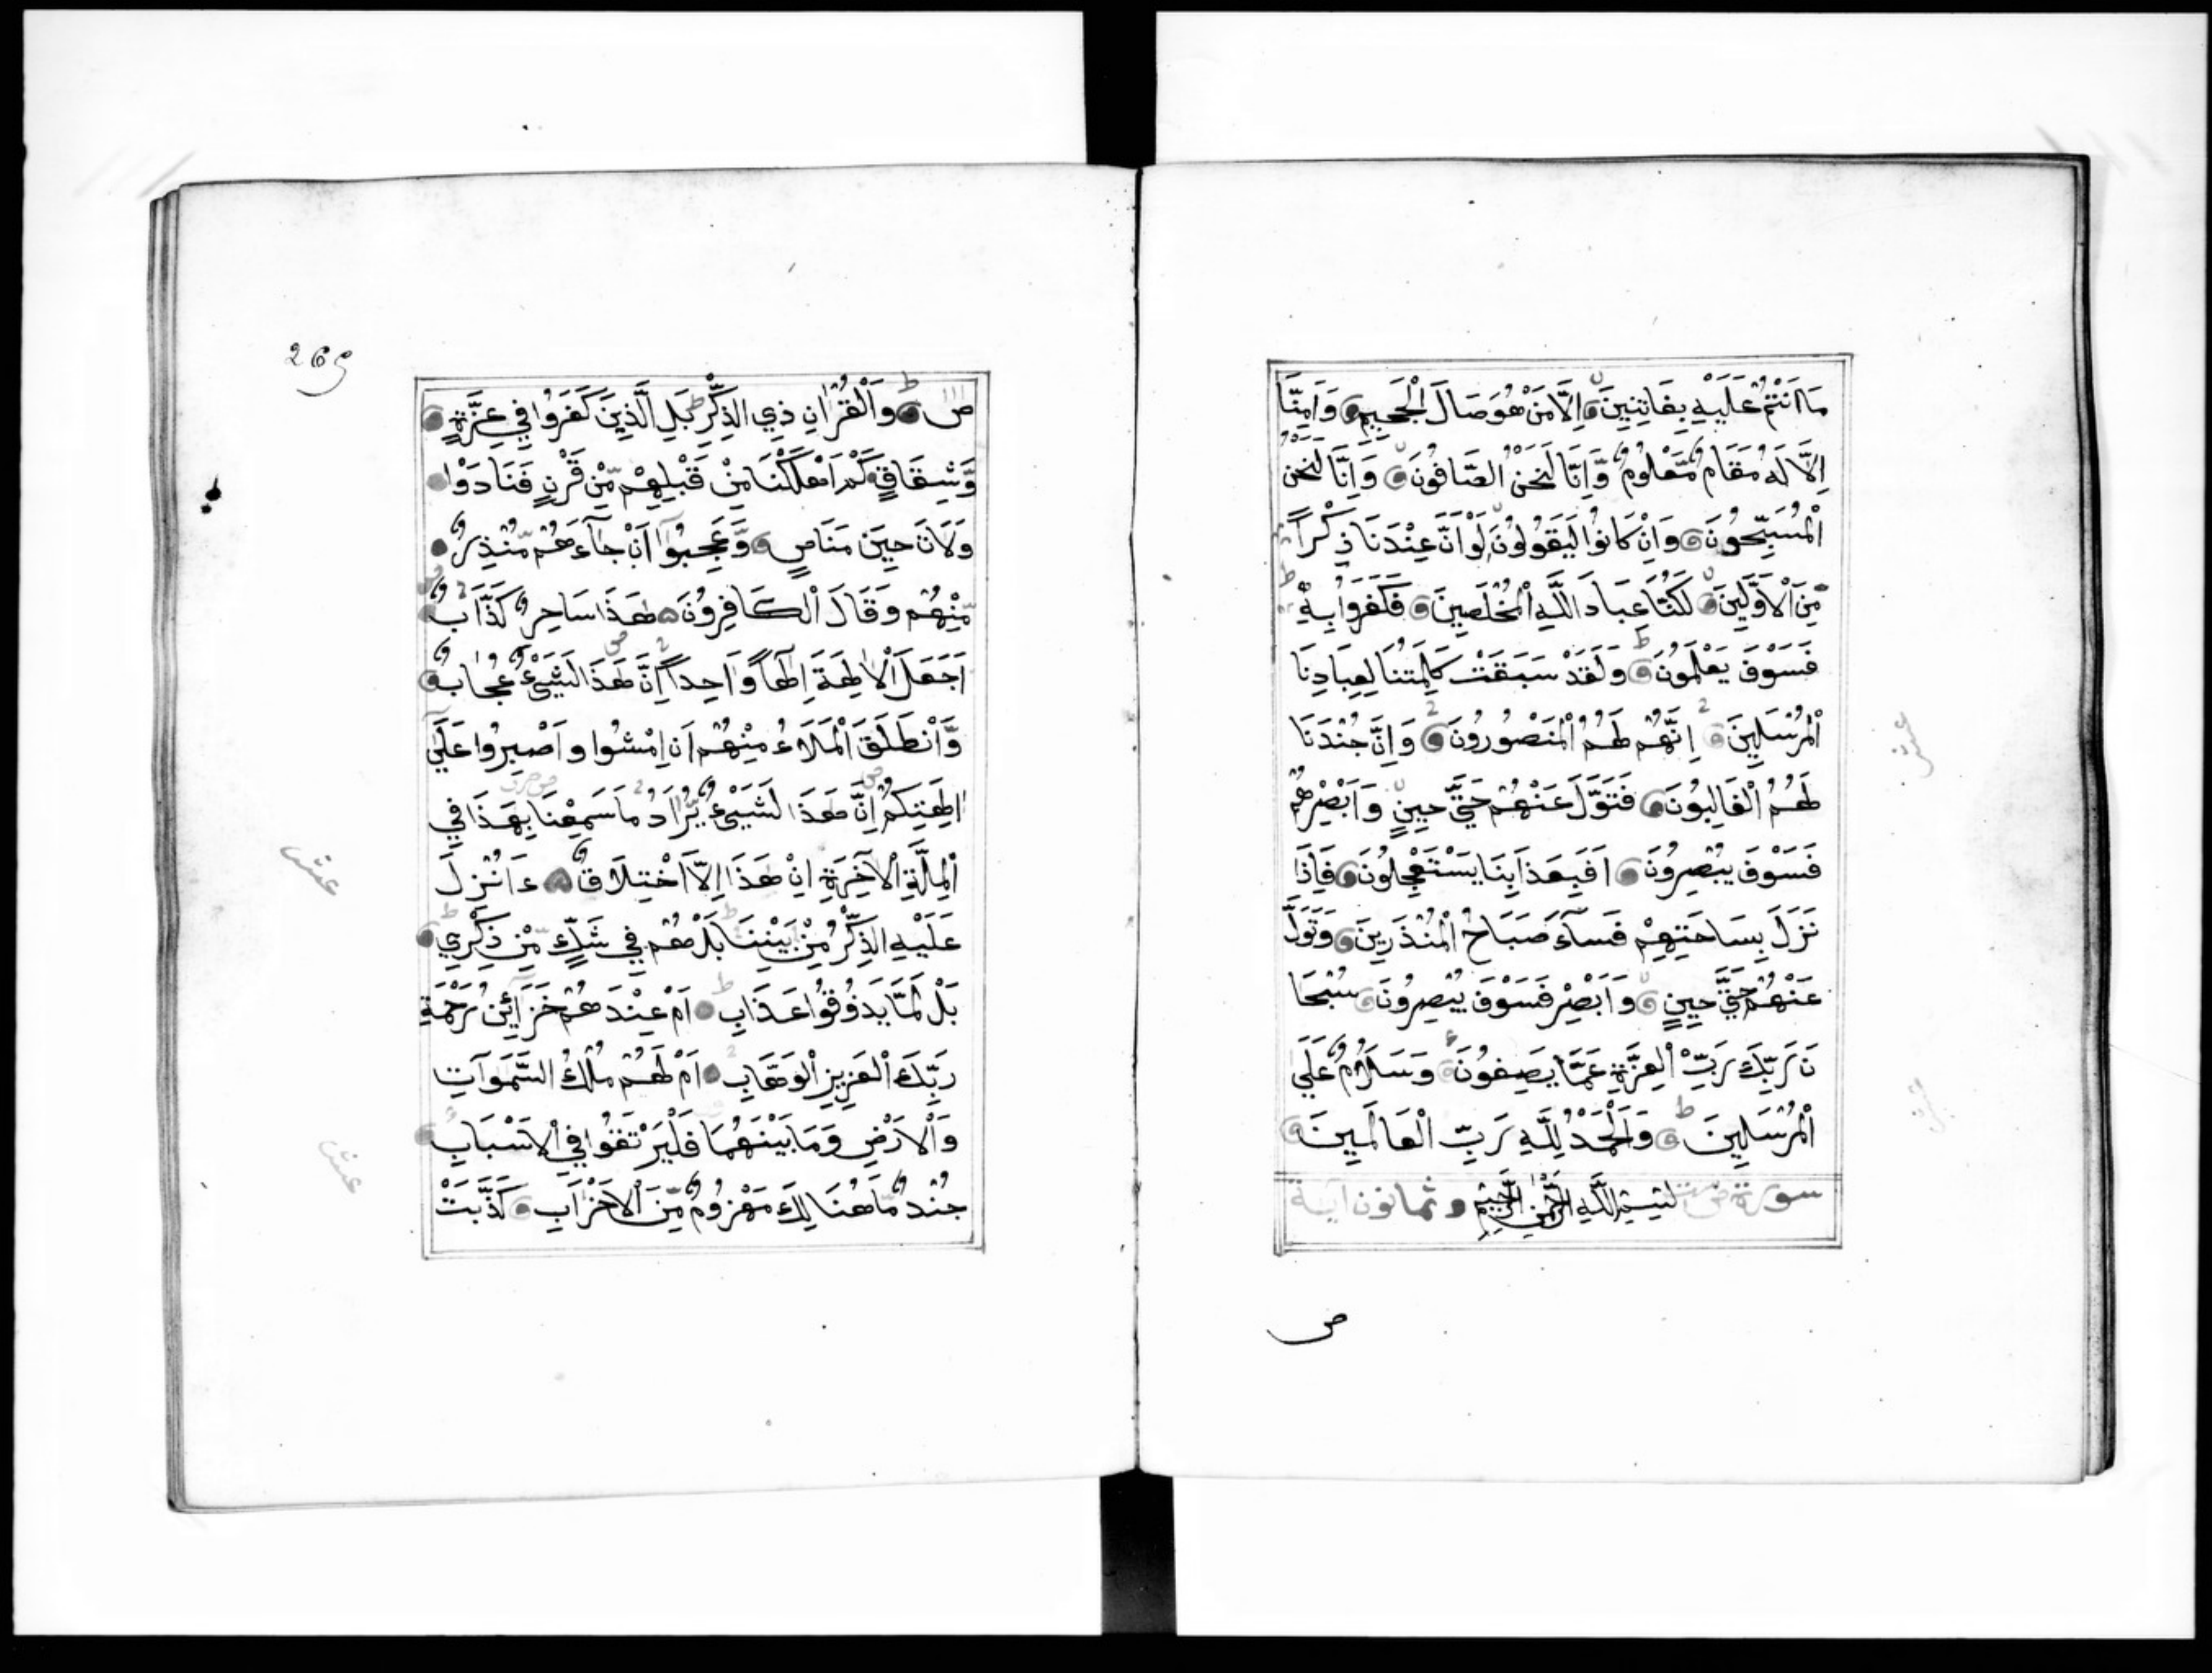 مَا اَنْتُمْ عَلَيْهِ بِفَاتِنِينَ اِلَّا مَنْ هُوَ صَالَ الْجَحِيمِ وَاَمِنَّا
اِلَّا لَهُ مَقَامٌ مَّعْلُومٌ وَّاِنَّا لَنَحْنُ الصَّافُّونَ وَاِنَّا لَنَحْنُ
الْمُسَبِّحُونَ وَاِنْ كَانُوا لَيَقُولُونَ لَوْ اَنَّ عِنْدَنَا ذِكْرًا
مِّنَ الْاَوَّلِينَ لَكُنَّا عِبَادَ اللَّهِ الْمُخْلَصِينَ فَكَفَرُوا بِهِ
فَسَوْفَ يَعْلَمُونَ وَلَقَدْ سَبَقَتْ كَلِمَتُنَا لِعِبَادِنَا
الْمُرْسَلِينَ اِنَّهُمْ لَهُمُ الْمَنْصُورُونَ وَاِنَّ جُنْدَنَا
لَهُمُ الْغَالِبُونَ فَتَوَلَّ عَنْهُمْ حَتَّى حِينٍ وَاَبْصِرْهُمْ
فَسَوْفَ يُبْصِرُونَ اَفَبِعَذَابِنَا يَسْتَعْجِلُونَ فَاِذَا
نَزَلَ بِسَاحَتِهِمْ فَسَآءَ صَبَاحُ الْمُنْذَرِينَ وَتَوَلَّ
عَنْهُمْ حَتَّى حِينٍ وَاَبْصِرْ فَسَوْفَ يُبْصِرُونَ سُبْحَا
نَ رَبِّكَ رَبِّ الْعِزَّةِ عَمَّا يَصِفُونَ وَسَلَامٌ عَلَى
الْمُرْسَلِينَ وَالْحَمْدُ لِلَّهِ رَبِّ الْعَالَمِينَ
سورة ص بِسْمِ اللَّهِ الرَّحْمٰنِ الرَّحِيمِ وثمانون آية
ص
عشر
269
ص وَالْقُرْاٰنِ ذِي الذِّكْرِ بَلِ الَّذِينَ كَفَرُوا فِي عِزَّةٍ
وَّشِقَاقٍ كَمْ اَهْلَكْنَا مِنْ قَبْلِهِمْ مِّنْ قَرْنٍ فَنَادَوْا
وَلَاتَ حِينَ مَنَاصٍ وَّعَجِبُوٓا اَنْ جَآءَهُمْ مُّنْذِرٌ
مِّنْهُمْ وَقَالَ الْكَافِرُونَ هَذَا سَاحِرٌ كَذَّابٌ
اَجَعَلَ الْاٰلِهَةَ اِلٰهًا وَّاحِدًا اِنَّ هَذَا لَشَيْءٌ عُجَابٌ
وَّانْطَلَقَ الْمَلَاءُ مِنْهُمْ اَنِ امْشُوا وَاصْبِرُوا عَلَى
اٰلِهَتِكُمْ اِنَّ هَذَا لَشَيْءٌ يُّرَادُ مَا سَمِعْنَا بِهَذَا فِي
الْمِلَّةِ الْآخِرَةِ اِنْ هَذَا اِلَّا اخْتِلَاقٌ ءَاُنْزِلَ
عَلَيْهِ الذِّكْرُ مِنْ بَيْنِنَا بَلْ هُمْ فِي شَكٍّ مِّنْ ذِكْرِي
بَلْ لَمَّا يَذُوقُوا عَذَابِ اَمْ عِنْدَهُمْ خَزَآئِنُ رَحْمَةِ
رَبِّكَ الْعَزِيزِ الْوَهَّابِ اَمْ لَهُمْ مُلْكُ السَّمَوَاتِ
وَالْاَرْضِ وَمَا بَيْنَهُمَا فَلْيَرْتَقُوا فِي الْاَسْبَابِ
جُنْدٌ مَّا هُنَالِكَ مَهْزُومٌ مِّنَ الْاَحْزَابِ كَذَّبَتْ
عشر
عشر